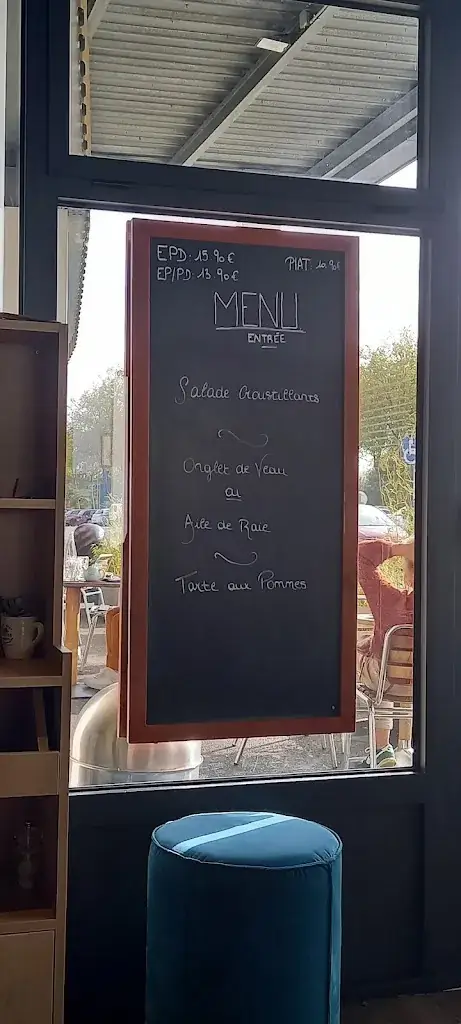 EPD: 15.90€
EP/PD: 13.90€
PLAT: 10.90€
MENU
ENTRÉE
Salade Croustillants
Onglet de Veau
ou
Aile de Raie
Tarte aux Pommes